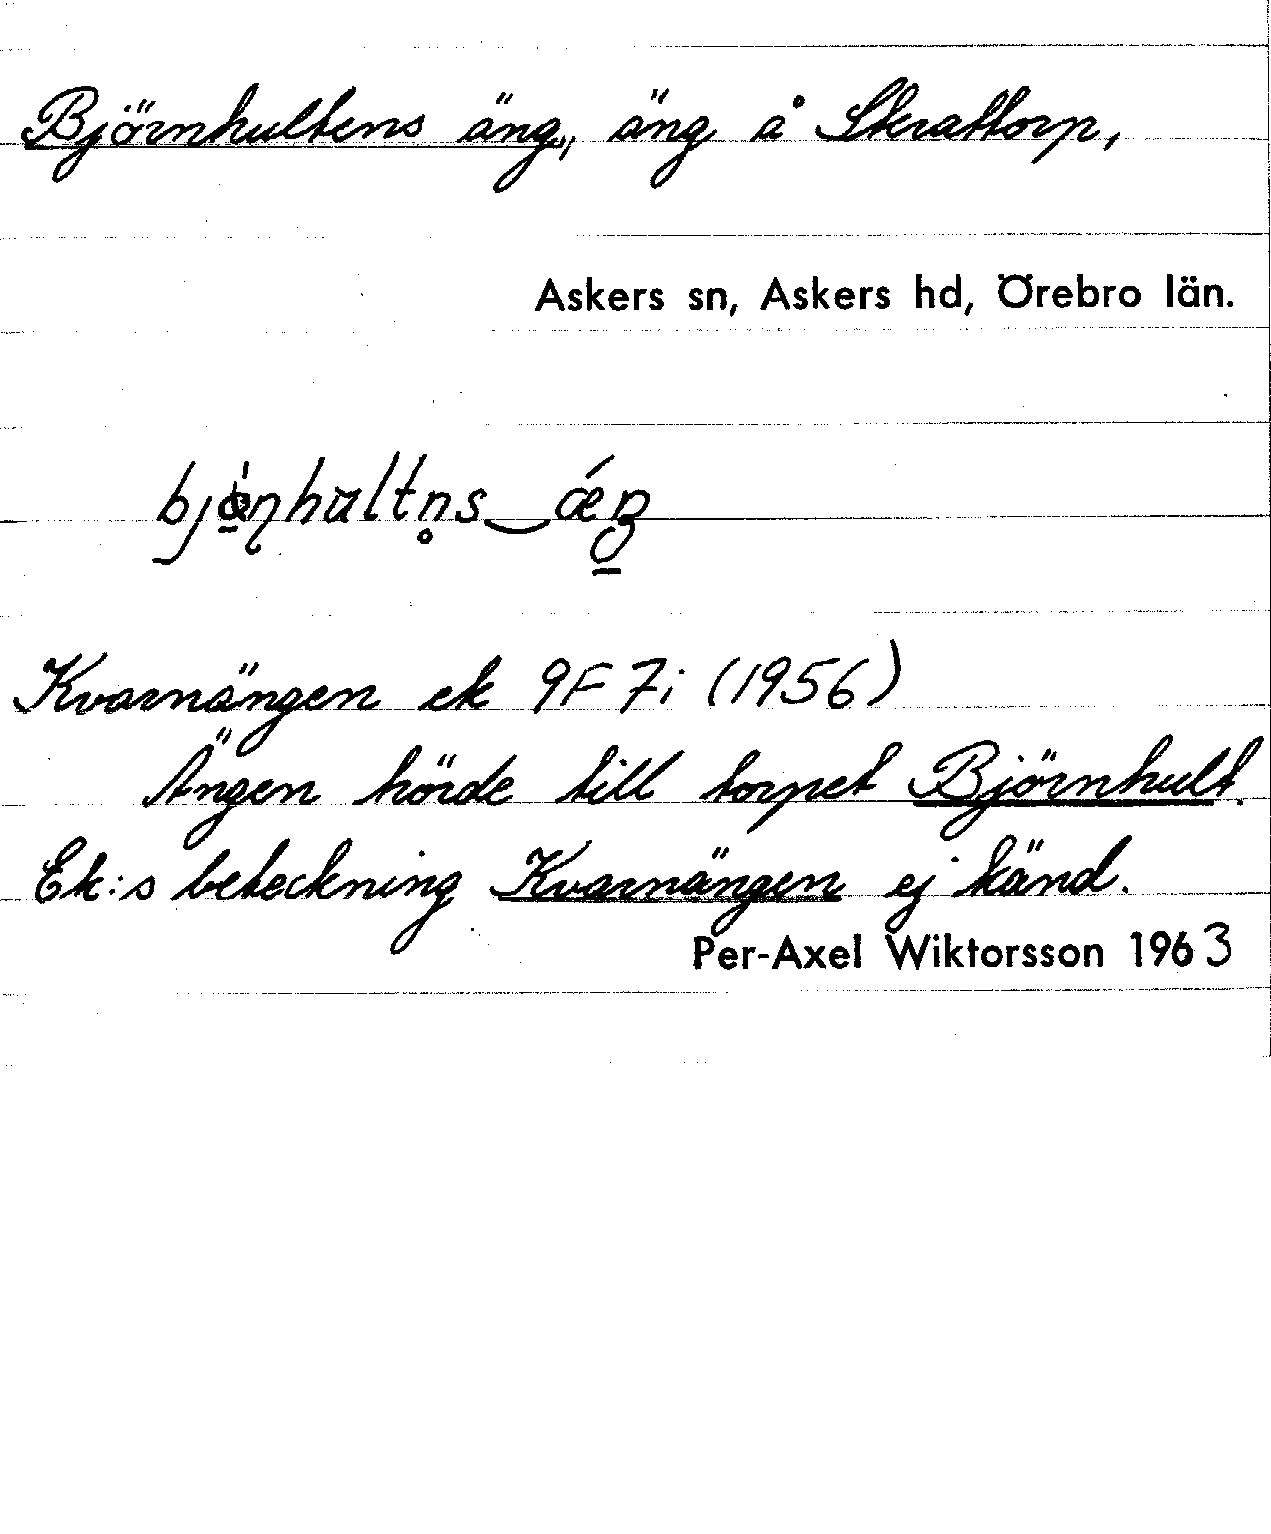 Björnhultens äng, äng å Skrattorp,
Askers sn, Askers hd, Örebro län.
Kvarnängen ek 9F 7i (1956)
Ängen hörde till torpet Björnhult.
Ek:s beteckning Kvarnängen ej känd.
Per-Axel Wiktorsson 1963